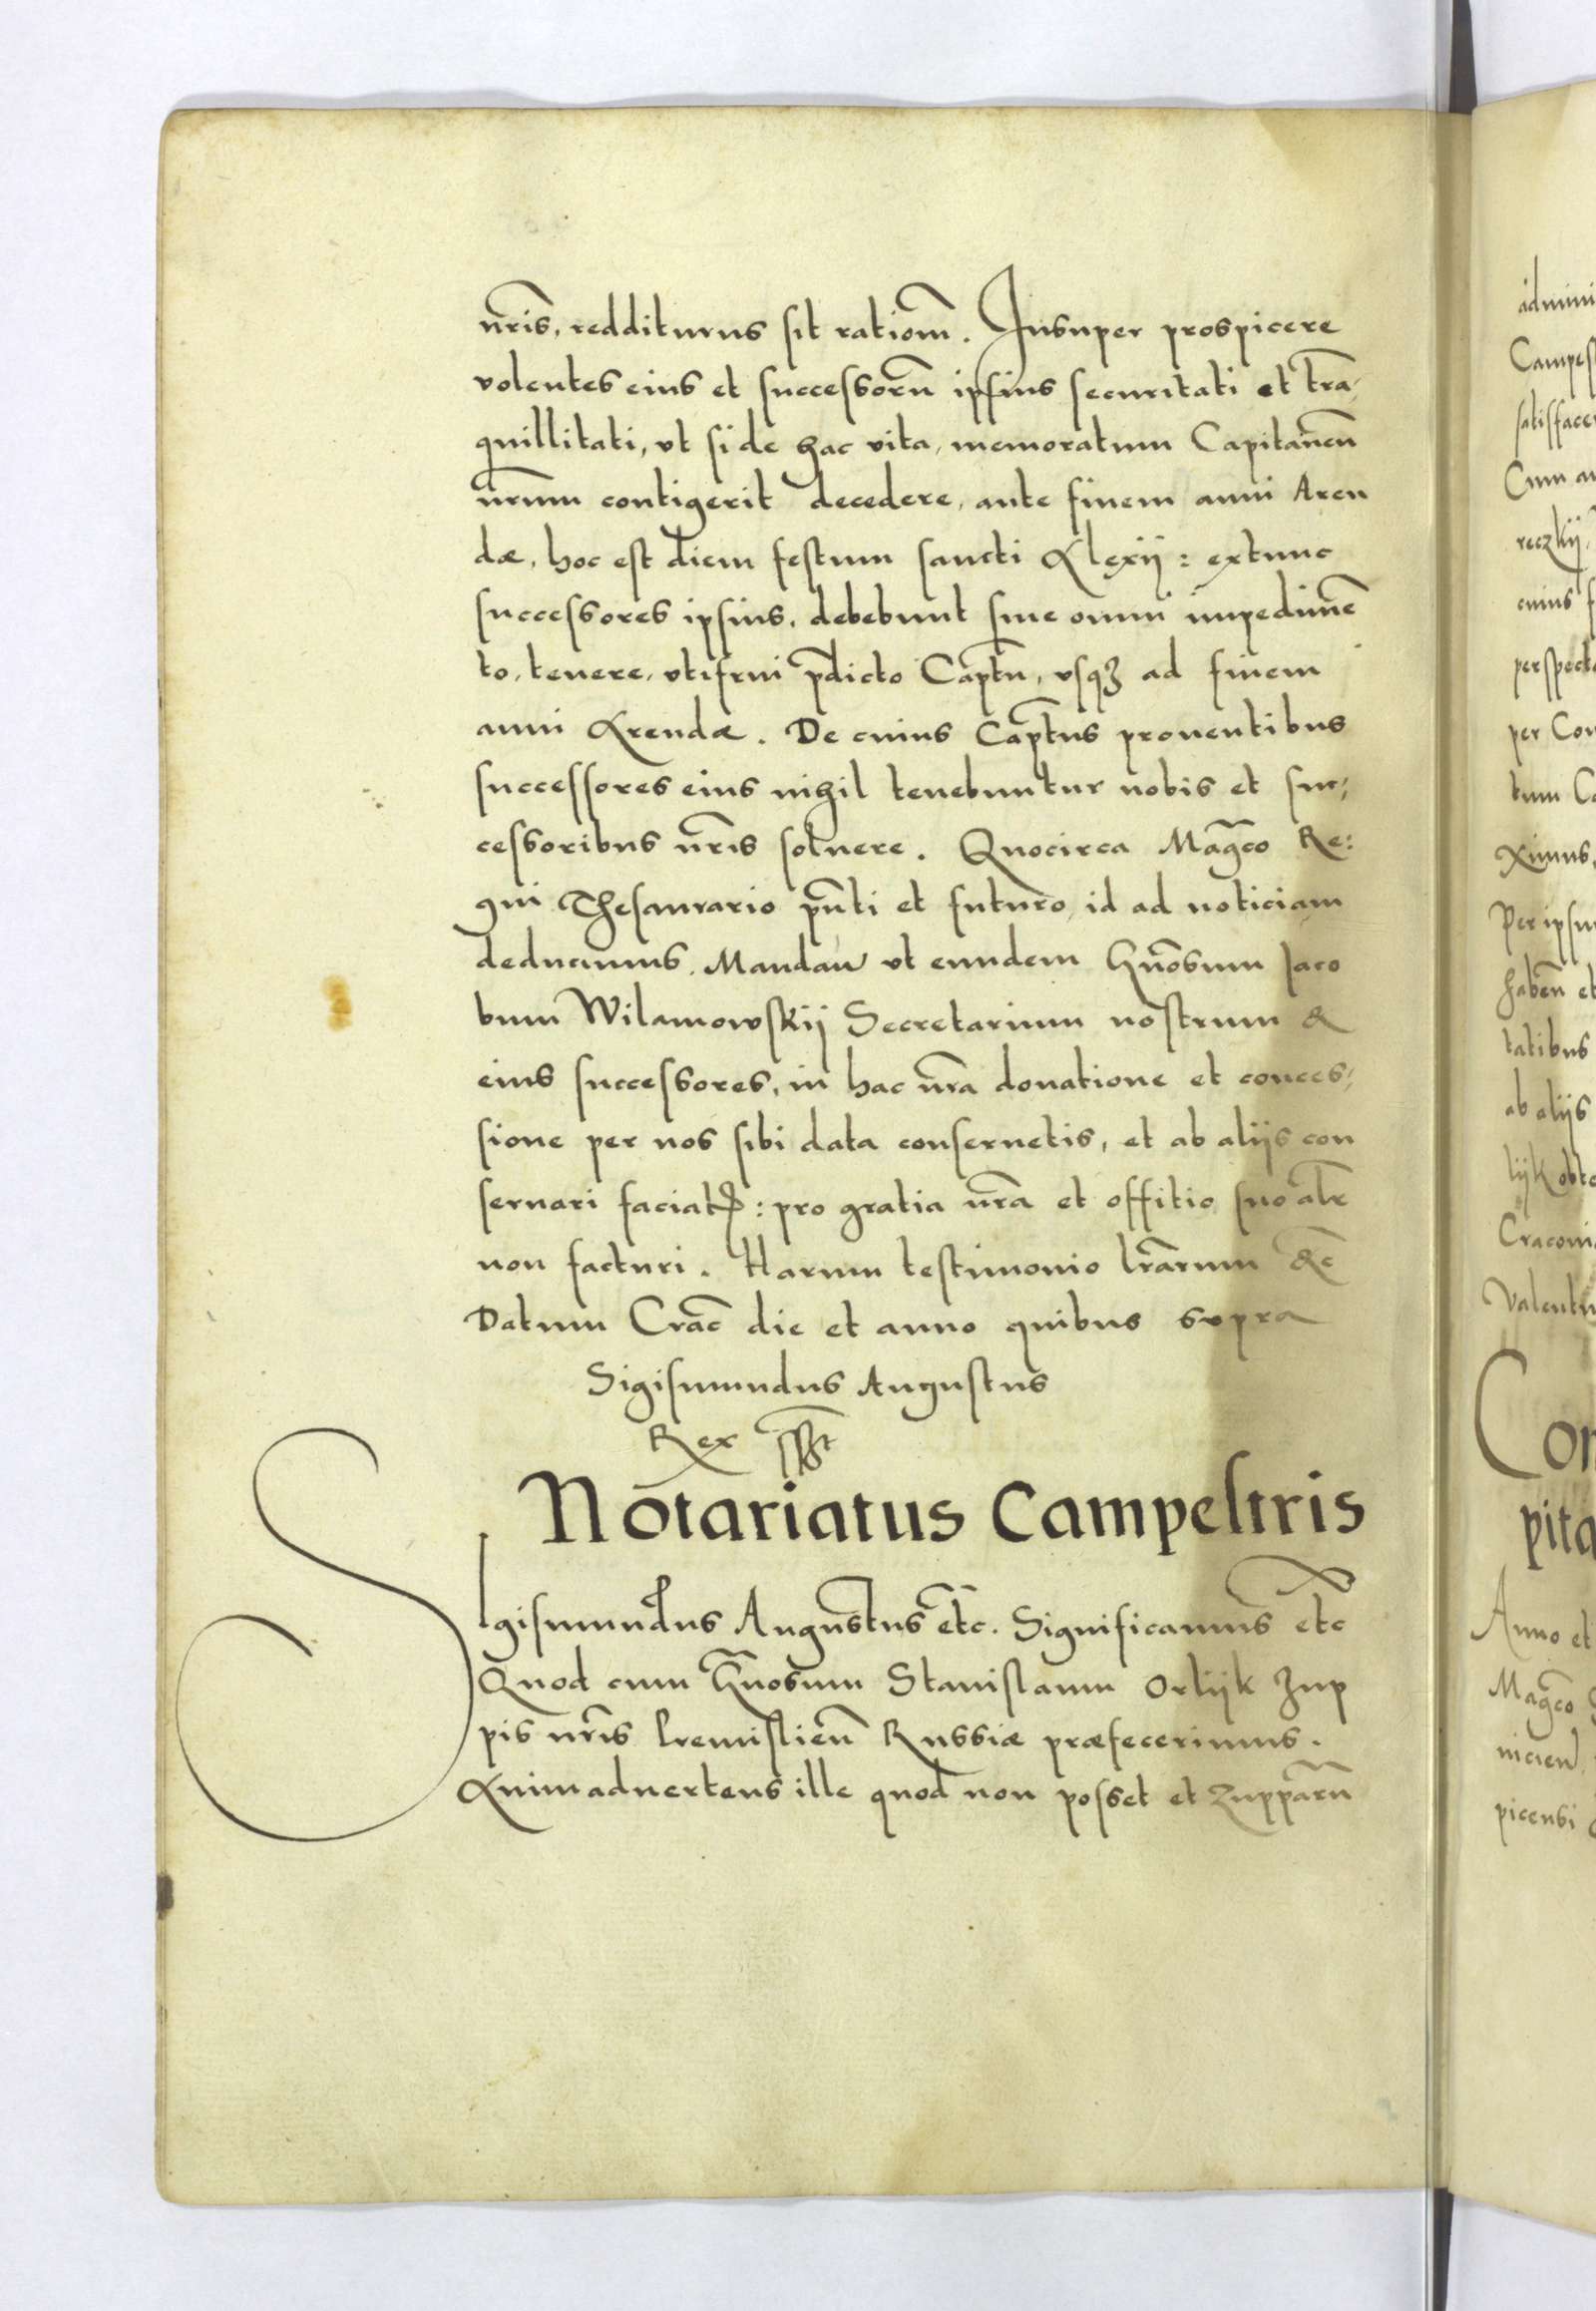 nr̃is, redditurus sit ratiom̃. Insuper prospicere
volentes eius et successorũ ipsius securitati et trã,
quillitati, vt si de hac vita, memoratum Capitañeũ
nr̃um contigerit decedere, ante finem anni Aren
dæ, hoc est diem festum sancti Alexij: extunc
successores ipsius, debebunt sine omni impedimẽ
to, tenere, vtifrui p̃dicto Capt̃u, vsqꝫ ad finem
anni Arendæ. De cuius Capt̃us prouentibus
successores eius nihil tenebuntur nobis et suc,
cessoribus nr̃is soluere. Quocirca Mag̃co Re:
gni Thesaurario pñti et futuro id ad noticiam
deducimus. Mandañ vt eundem Gñosum Jaco
bum Wilamowskij Secretarium nostrum &
eius successores, in hac nr̃a donatione et conces,
sione per nos sibi data conseruetis, et ab alijs con
seruari faciatꝭ: pro gratia nr̃a et offitio suo alr̃
non facturi. Harum testimonio lr̃arum &c̃
Datum Crac̃ die et anno quibus supra
Sigismundus Augustus
Rex sst̃
Notariatus Campestris
SIgismundus Augustus etc̃. Significamus etc̃
Quod cum Gñosum Stanislaum Orlijk Zup
pis nr̃is Premislieñ Russiæ præfecerimus.
Animaduertens ille quod non posset et Zupparũ
admini
Campes
satisface
Cum an
reczkij
cuius f
perspecta
per Con
tum Ca
ximus,
Per ipsu
habeñ et
tatibus
ab alijs
lijk obte
Cracoui
Valentu
Con
pita
Anno et
Mag̃co
picensi